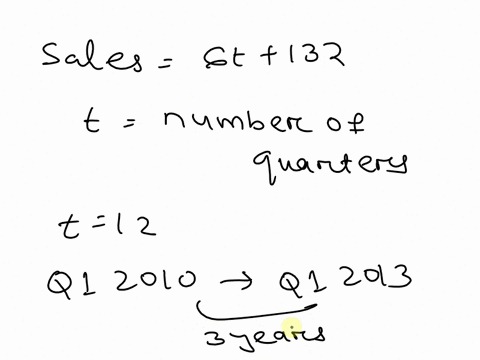 Sales = 6t + 132
t = number of
quarters
t = 12
Q1 2010 → Q1 2013
3 years